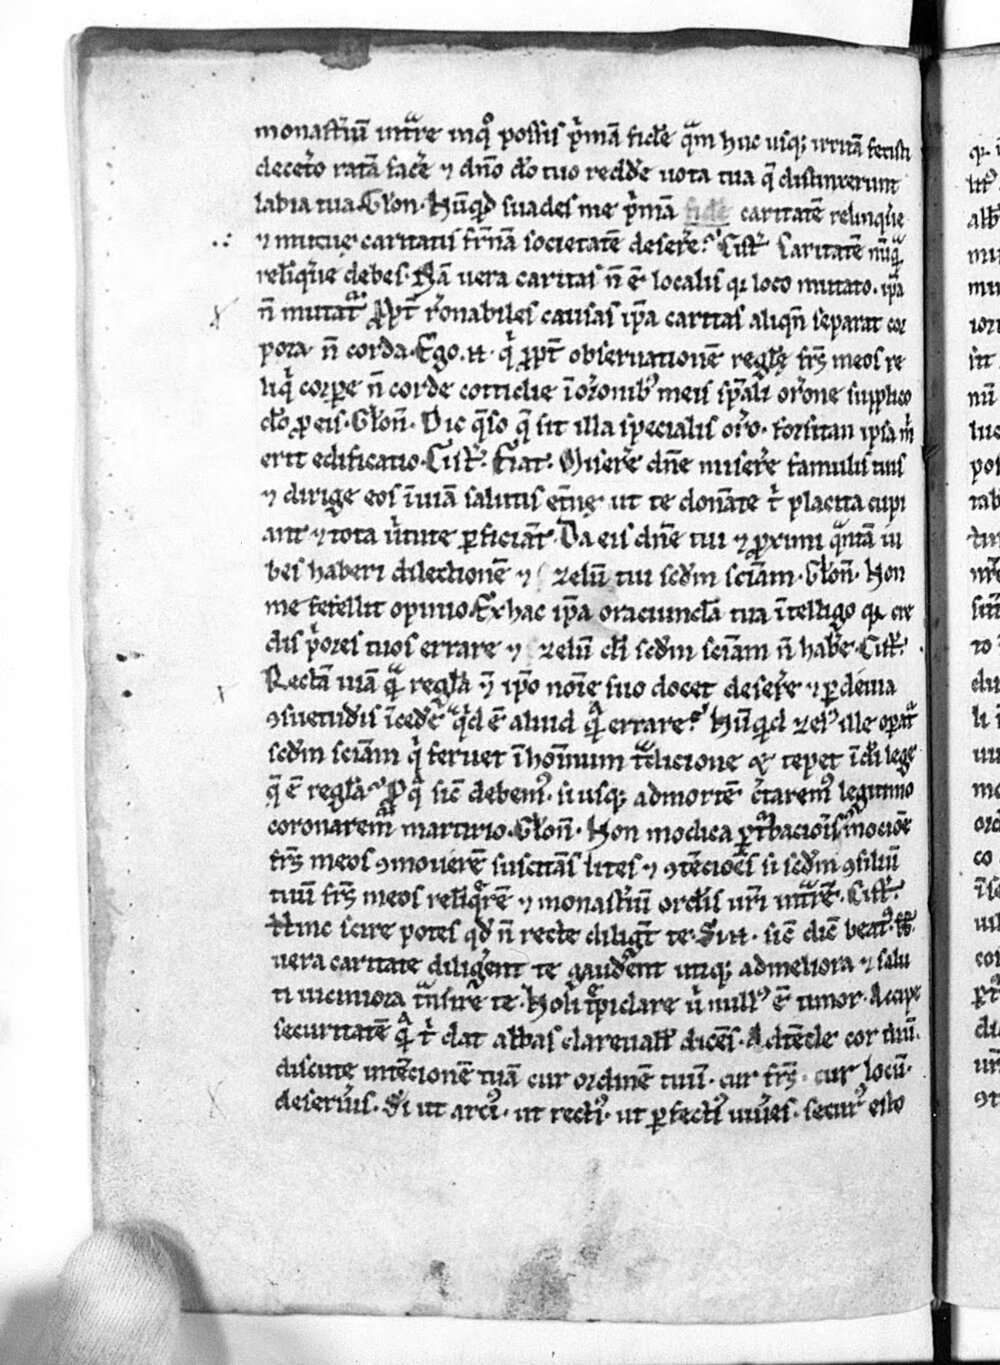 monast̾iū int̾re inq̊ possis p̾mā fidē quā huc usq; irritā fecisti
decet̾o ratā fac̾e ⁊ dño do tuo redde uota tua q̄ distinxerunt
labia tua. Clon̄. Nūqd̄ suades me p̾mā fidē caritatē relinq̾e
⁊ mutuę caritatis fr̄nā societatē deser̾e? Cist̾. Caritatē nūq̄
relīq̾e debes. Nā uera caritas ñ ē localis q̄ loco mutato. ip̄a
ñ mutat̾. Ꝓpt̄ r̄onabiles causas ip̄a caritas aliqñ separat cor
pora ñ corda. Ego .n. q̾ ꝓpt̄ obseruationē reglę fr̄s meos re
liq̾ corpe ñ corde cottidie ī or̄onib᷒ meis sp̄ali or̄one supplico
do ꝓ eis. Clon̄. Dic q̄so q̄ sit illa specialis or̄o. forsitan ipsa m̾
erit edificatio. Cist̾. Fiat. Miser̾e dñe miser̾e famulis tuis
⁊ dirige eos ī uiā salutis et̄nę ut te donāte t̾ placita cupi
ant ⁊ tota u̾tute ꝑficiāt. Da eis dñe tui ⁊ ꝓximi quā iu
bes haberi dilectionē ⁊ zelū tui scd̄m sciām. Clon̄. Non
me fefellit opinio. Ex hac ip̄a oraciuncla tua ītelligo q̄ cre
dis p̾ores tuos errare ⁊ zelū di scd̄m sciām ñ hab̾e. Cist̾.
Rectā uiā quā regla ī ip̄o noīe suo docet deser̾e ⁊ ꝑ deuia
ꝯsuetudīs īcedēe q̾d ē aliud quā errare? Nūqd̄ zel᷒ ille opat̾
scd̄m sciām q̾ feruet ī hoīnum tradicione & tepet ī di lege
q̄ ē regla? Ꝓ q̄ sic̄ debem᷒. si usq; ad mortē c̾tarem᷒ legitimo
coronarem̾ martirio. Clon̄. Non modica ꝑt̾bacioīs mocioē
fr̄s meos ꝯmouerē suscitās lites ⁊ ꝯtēcioēs si scd̄m ꝯsiliū
tuū fr̄s meos relīq̾rē ⁊ monast̾iū ordīs ur̄i int̾rē. Cist̾.
Hinc scire potes qd̄ ñ recte diligt̄ te. Si .n. sic̄ dic̄ beat᷒ b̄b̄.
uera caritate diliḡent te gaudēnt utiq; ad meliora ⁊ salu
ti uiciniora t̾nsire te. Noli t̾pidare u̾ null᷒ ē timor. Accipe
securitatē quā t̾ dat abbas clareuall̾ dicēs. Adtēde cor tuū.
discute intēcionē tuā cur ordinē tuū. cur fr̄s. cur locū.
deseru̾is. Si ut arci᷒. ut recti᷒. ut ꝑfecti᷒ uiues. secur᷒ esto